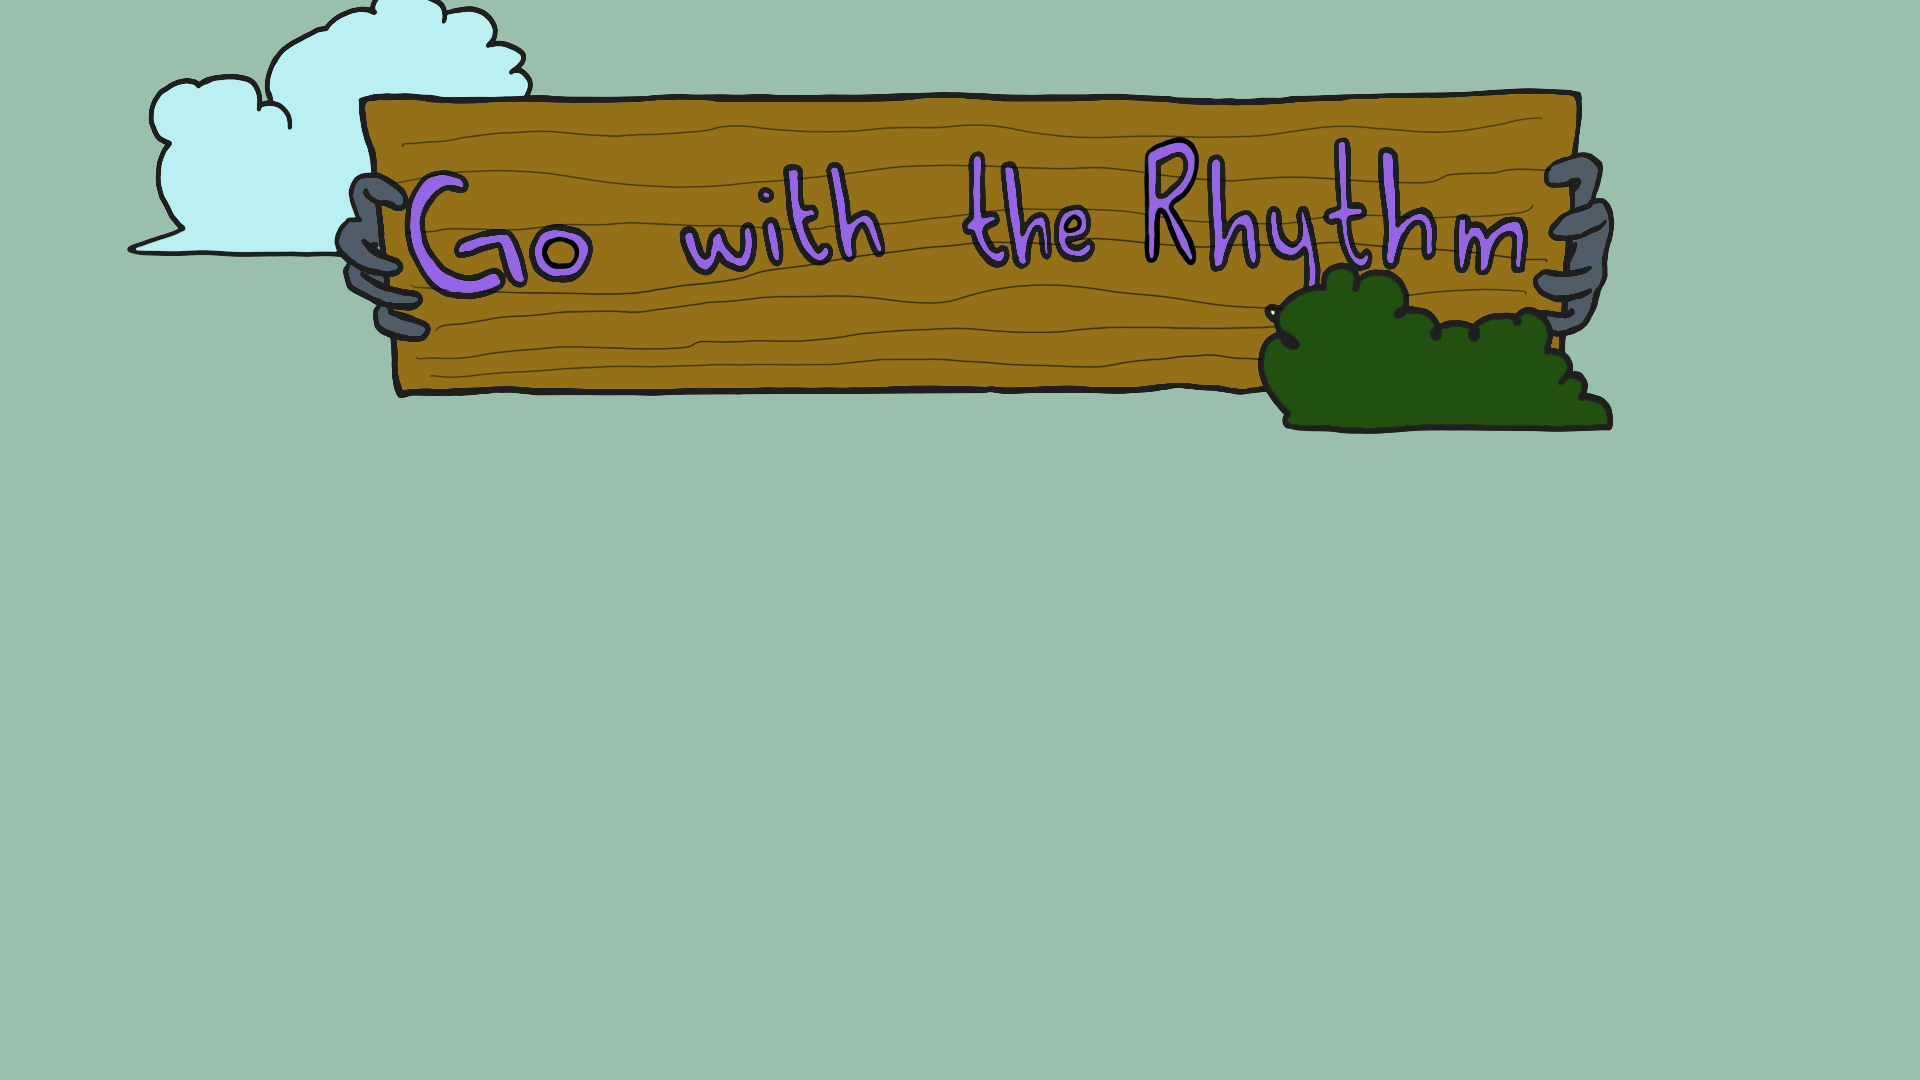 Go with the Rhythm